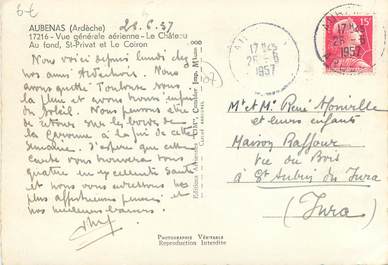 6€
AUBENAS (Ardèche)
17216 - Vue générale aérienne - Le Château
Au fond, St-Privat et Le Coiron
26.6.57
Nous voici depuis lundi chez
nos amis Ardéchois. Nous
avons quitté Toulouse sous
la pluie et avons trouvé ici
du soleil. Nous pensons être
de retour sur les bords de
la Garonne à la fin de cette
semaine. J'espère que cette
carte vous trouvera tous
quatre en excellente santé
et nous vous adressons nos
plus affectueuses pensées et
nos meilleurs baisers.
17H45
26-6
1957
17H45
26-6
1957
15F
Mr et Me René
et leurs enfants
Maison Raffour
rue du Bois
à St Aubin du Jura
(Jura)
PHOTOGRAPHIE VÉRITABLE
Reproduction Interdite